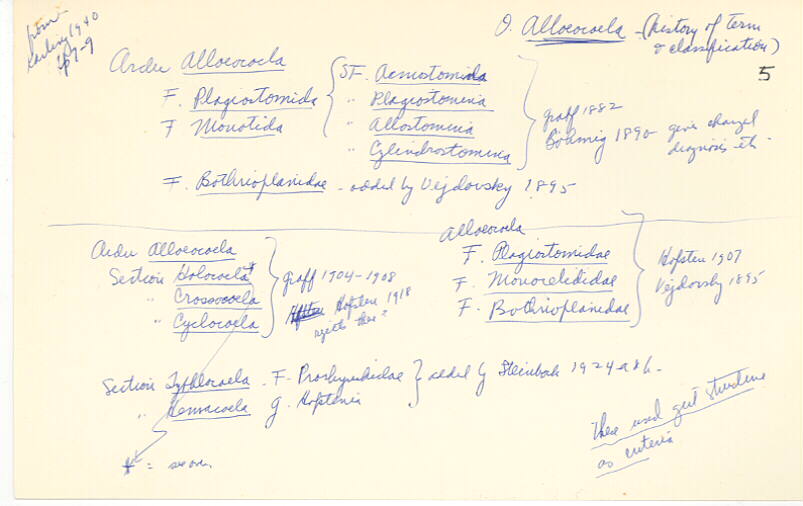 from
Karling 1940
p 7-9
O. Alloeocoela - (history of term
& classification)
5
Order Alloeocoela
F. Plagiostomida
F Monotida
SF. Acmostomida
" Plagiostomina
" Allostomina
" Cylindrostomina
graff 1882
Böhmig 1890 - gives changed
diagnosis etc.
F. Bothrioplanidae - added by Vejdovsky 1895
Order Alloeocoela
Section Holocoela
" Crossocoela
" Cyclocoela
graff 1904-1908
Hofsten 1918
rejects these
Alloeocoela
F. Plagiostomidae
F. Monocelididae
F. Bothrioplanidae
Hofsten 1907
Vejdovsky 1895
Section Typhlocoela - F. Prorhynchidae
" Hemiacoela g. Hofstenia
added by Steinbock 1924
These used gut structure
as criteria
= see over